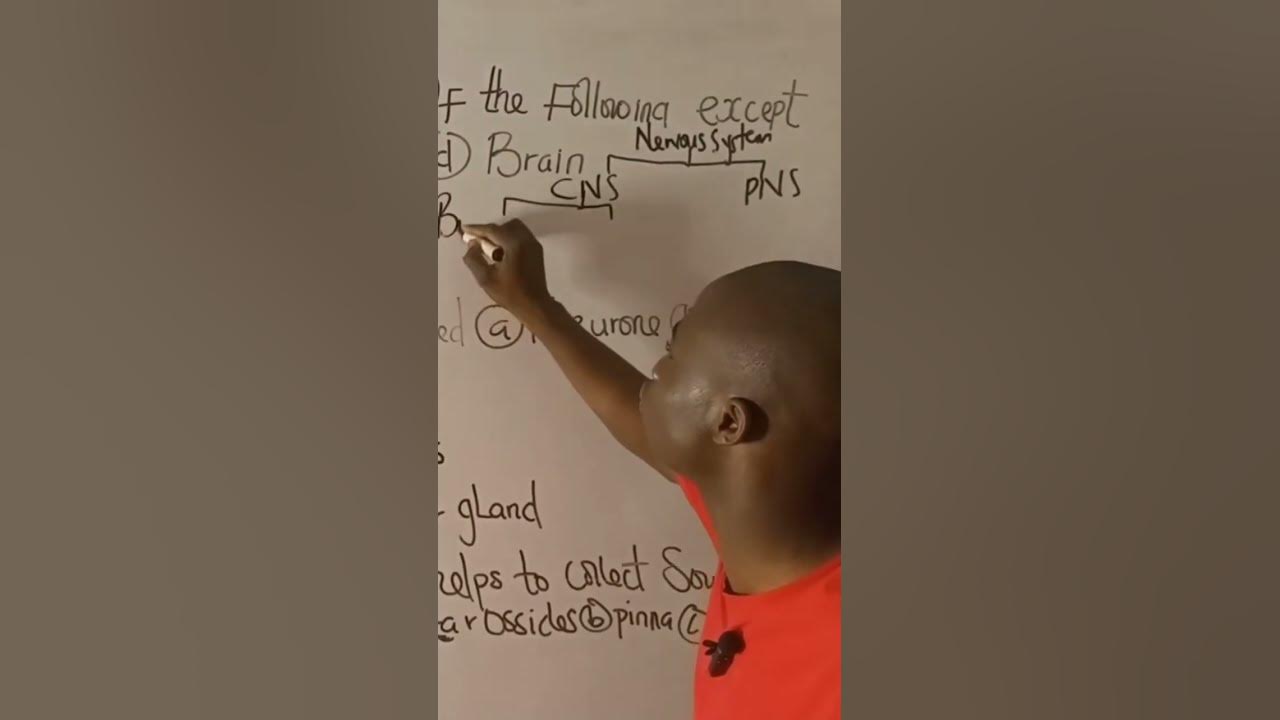 F the Following except
Nervous System
d) Brain
CNS PNS
B
ed (a) eurone
s
gland
helps to collect Sou
ar ossicles (b) pinna (c